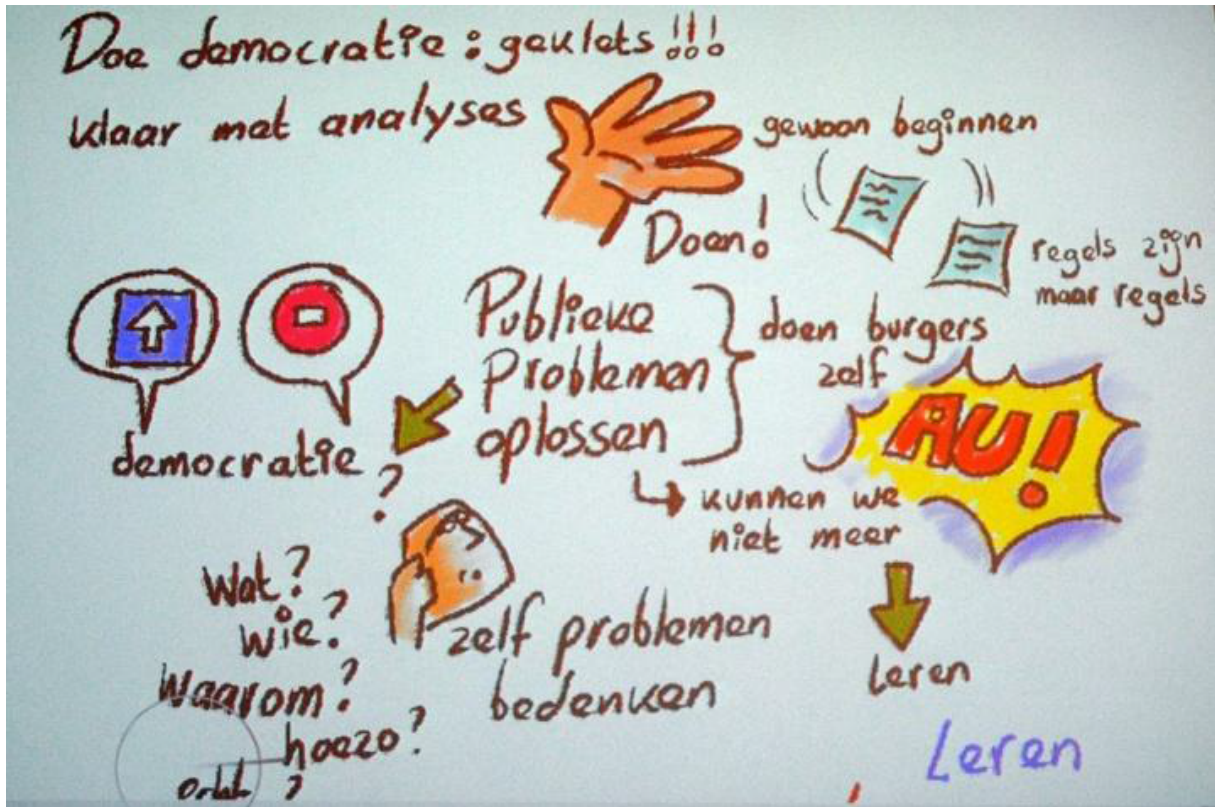 Doe democratie : geklets !!!
klaar met analyses
gewoon beginnen
Doen!
regels zijn
maar regels
Publieke
Problemen
oplossen
doen burgers
zelf
AU!
democratie
?
kunnen we
niet meer
Wat?
wie?
waarom?
hoezo?
?
zelf problemen
bedenken
leren
Leren